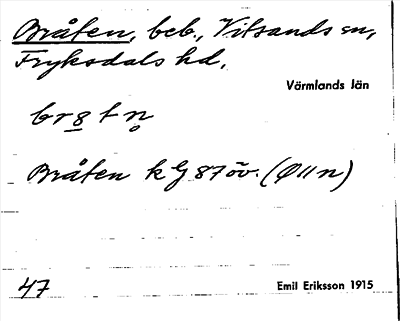 Bråten, beb., Vitsands sn,
Fryksdals hd,
Värmlands län
br8tn̥
Bråten kG 87 öv. (Ø11n)
47
Emil Eriksson 1915